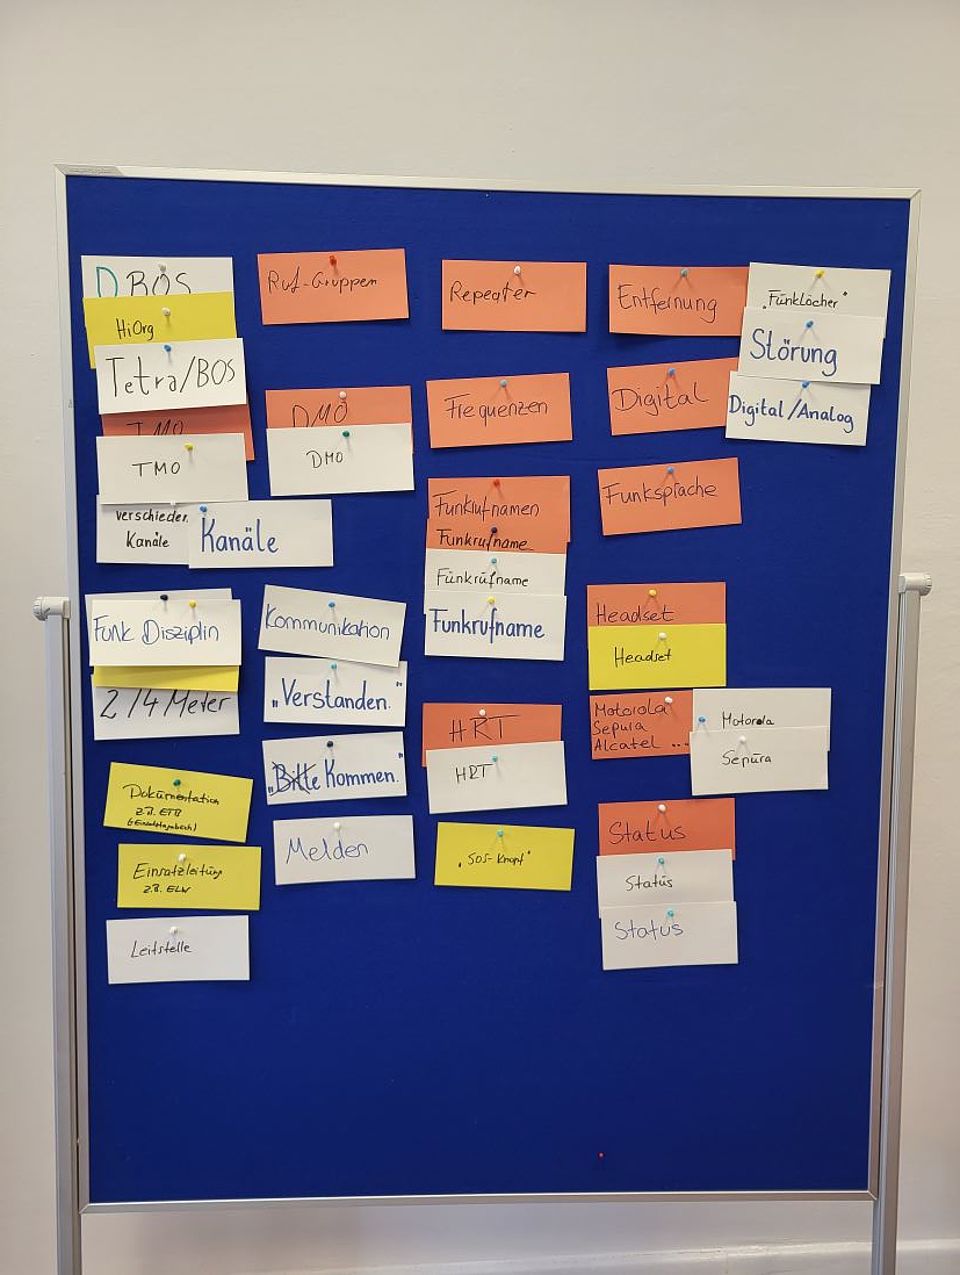 DBOS
HiOrg
Tetra/BOS
TMO
TMO
verschieden.
Kanäle
Kanäle
Funk Disziplin
2/4 Meter
Dokumentation
z.B. ETB
(Einsatztagebuch)
Einsatzleitung
z.B. ELW
Leitstelle
Ruf-Gruppen
DMO
DMO
Kommunikation
„Verstanden."
„Bitte Kommen."
Melden
Repeater
Frequenzen
Funkrufnamen
Funkrufname
Funkrufname
Funkrufname
HRT
HRT
„SOS-Knopf"
Entfernung
„Funklöcher"
Störung
Digital
Digital/Analog
Funksprache
Headset
Headset
Motorola
Sepura
Alcatel ...
Motorola
Sepura
Status
Status
Status